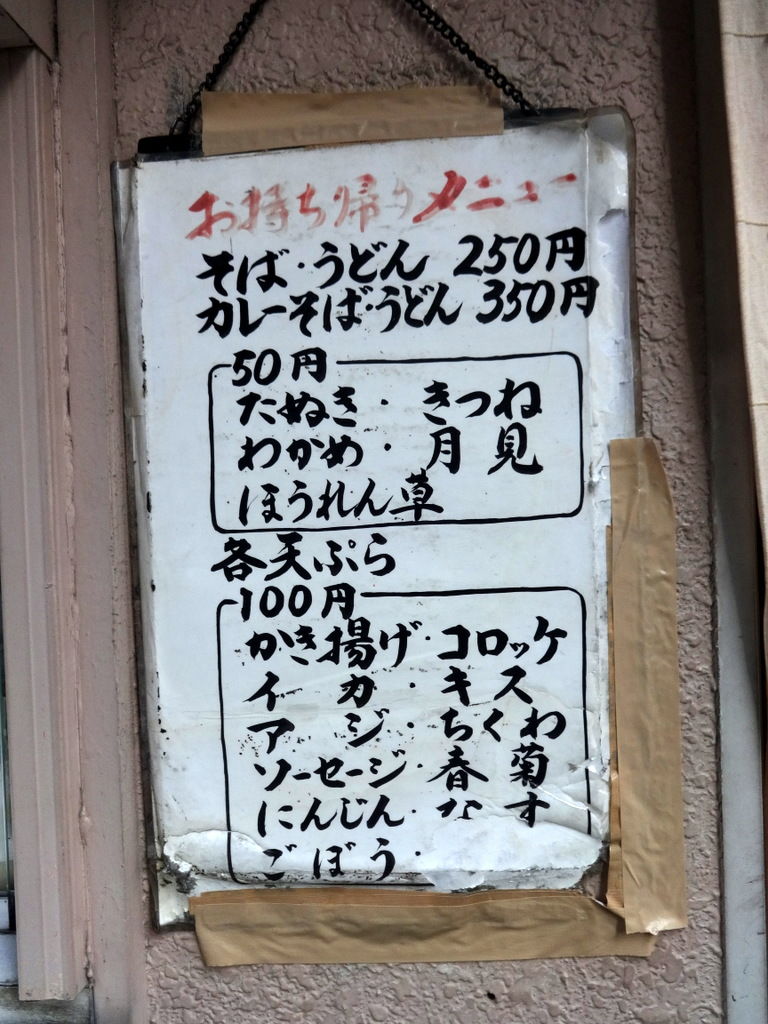 お持ち帰りメニュー
そば・うどん 250円
カレーそば・うどん 350円
50円
たぬき・きつね
わかめ・月見
ほうれん草
各天ぷら
100円
かき揚げ・コロッケ
イカ・キス
アジ・ちくわ
ソーセージ・春菊
にんじん・なす
ごぼう・